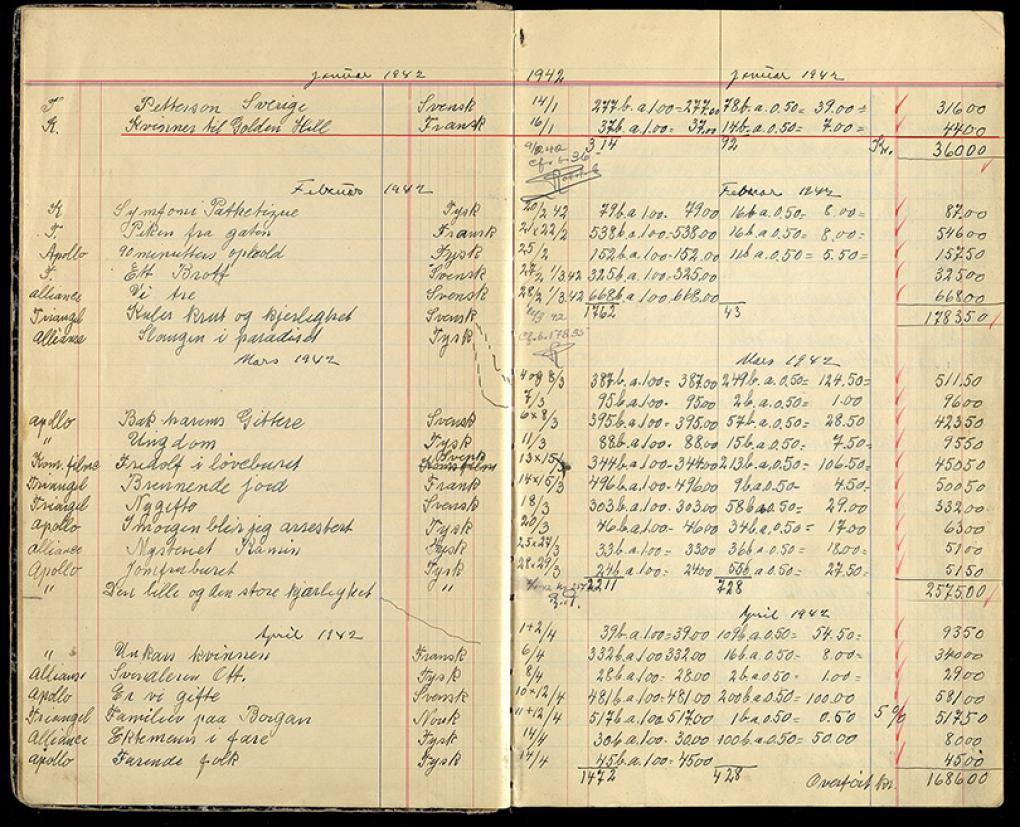 Januar 1942 1942 Januar 1942
F Petterson Sverige Svensk 14/1 277 b. a 1.00 = 277.00 78 b. a. 0.50 = 39.00 = 316 00
K. Kvinnen til Golden Hill Fransk 16/1 37 b. a 1.00 = 37.00 14 b. a. 0.50 = 7.00 = 44 00
314 92 Kr. 360 00
Februar 1942 Februar 1942
K Symfoni Pathetique Tysk 20/2 42 79 b. a 1.00 - 79 00 16 b. a. 0.50 = 8.00 = 87.00
F. Piken fra gaten Fransk 21 x 22/2 538 b. a 1.00 - 538.00 16 b. a. 0.50 = 8.00 = 546 00
Apollo 90 minutters ophold Tysk 25/2 152 b. a 1.00 - 152.00 11 b a. 0.50 = 5.50 = 157 50
F. Ett Brott Svensk 27/2 1/3.42 325 b. a 1.00 - 325.00 325 00
alliance Vi tre Svensk 28/2 1/3.42 668 b. a 1.00 668.00 668 00
Triangel Kuler krut og kjerlighet Svensk 1762 43 1783 50
Alliance Slangen i paradiset Tysk
Mars 1942 Mars 1942
4 og 8/3 387 b. a 1.00 = 387.00 249 b. a. 0.50 = 124.50 = 511.50
7/3 95 b a. 1.00 - 95 00 2 b. a. 0.50 = 1.00 96 00
apollo Bak harems Gittere Svensk 6 x 8/3 395 b a. 1.00 = 395.00 57 b. a. 0.50 = 28.50 423 50
" Ungdom Tysk 11/3 88 b a. 1.00 - 88.00 15 b. a. 0.50 = 7.50 = 95 50
Kom.filme Fredolf i løveburet Svensk 13 x 15/3 344 b a. 1.00 - 344.00 213 b. a. 0.50 = 106.50 = 450 50
Triangel Brennende jord Frank 14 x 15/3 496 b a. 1.00 - 496 00 9 b a. 0.50 - 4.50 = 500 50
Triangel Nygifte Svensk 18/3 303 b a. 1.00 - 303.00 58 b a 0.50 = 29.00 332 00
apollo I morgen blir jeg arrestert Tysk 20/3 46 b a 1.00 - 46 00 34 b a. 0.50 = 17.00 63 00
alliance Mysteriet Kamin Tysk 25 x 27/3 33 b a. 1.00 - 33 00 36 b a. 0.50 = 18.00 = 51 00
Apollo Jomfruburet Tysk 28 x 29/3 24 b a. 1.00 = 24 00 55 b a. 0.50 = 27.50 = 51 50
" Den lille og den store kjærlighet " 2211 728 2575 00
April 1942 April 1942
1+2/4 39 b. a 1.00 = 39 00 109 b. a. 0.50 = 54.50 = 93 50
" Unkars kvinnen Fransk 6/4 332 b. a 1.00 332.00 16 b a. 0.50 = 8.00 = 340 00
Allianse Svindleren Ott. Tysk 8/4 28 b a. 1.00 = 28.00 2 b a. 0.50 = 1.00 = 29 00
Apollo Er vi gifte Svensk 10 x 12/4 481 b a. 1.00 = 481.00 200 b a. 0.50 = 100.00 581 00
Triangel Familien paa Borgan Norsk 11+12/4 517 b. a 1.00 - 517.00 1 b a. 0.50 = 0.50 5 % 517 50
Alliance Ektemann i fare Tysk 14/4 30 b a. 1.00 - 30.00 100 b a. 0.50 = 50.00 80 00
apollo Farende folk Tysk 14/4 45 b a. 1.00 = 45 00 45 00
1472 428 Overført kr. 1686 00